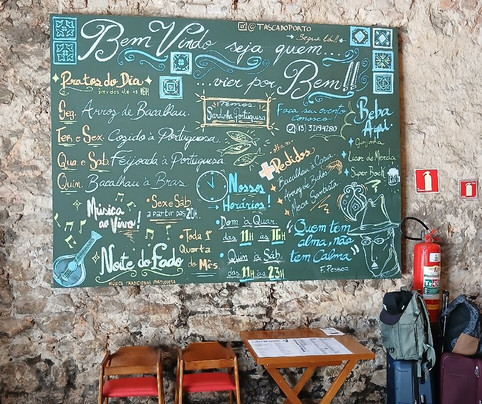 @TASCADOPORTO
Segue lá!!
Bem Vindo seja quem...
...vier por Bem!!
Pratos do Dia
Seg. Arroz de Bacalhau.
Ter e Sex. Cozido à Portuguesa.
Qua e Sab. Feijoada à Portuguesa
Quin. Bacalhau à Bras.
Temos
Sardinha Portuguesa
Faça seu evento
Conosco!
Beba
Aqui
Ginjinha
Licor de Merda
Super Bock
+ Pedidos
Bacalhau a Casa
Nossos
Horários!
Dom à Quar.
das 11h às 16h
Quin à Sáb
das 11h às 23h
Música
ao Vivo!
Sex e Sáb
a partir das
Noite do Fado
MÚSICA TRADICIONAL PORTUGUESA
Toda 1ª
Quarta
do Mês.
"Quem tem
alma, não
tem Calma"
F. Pessoa